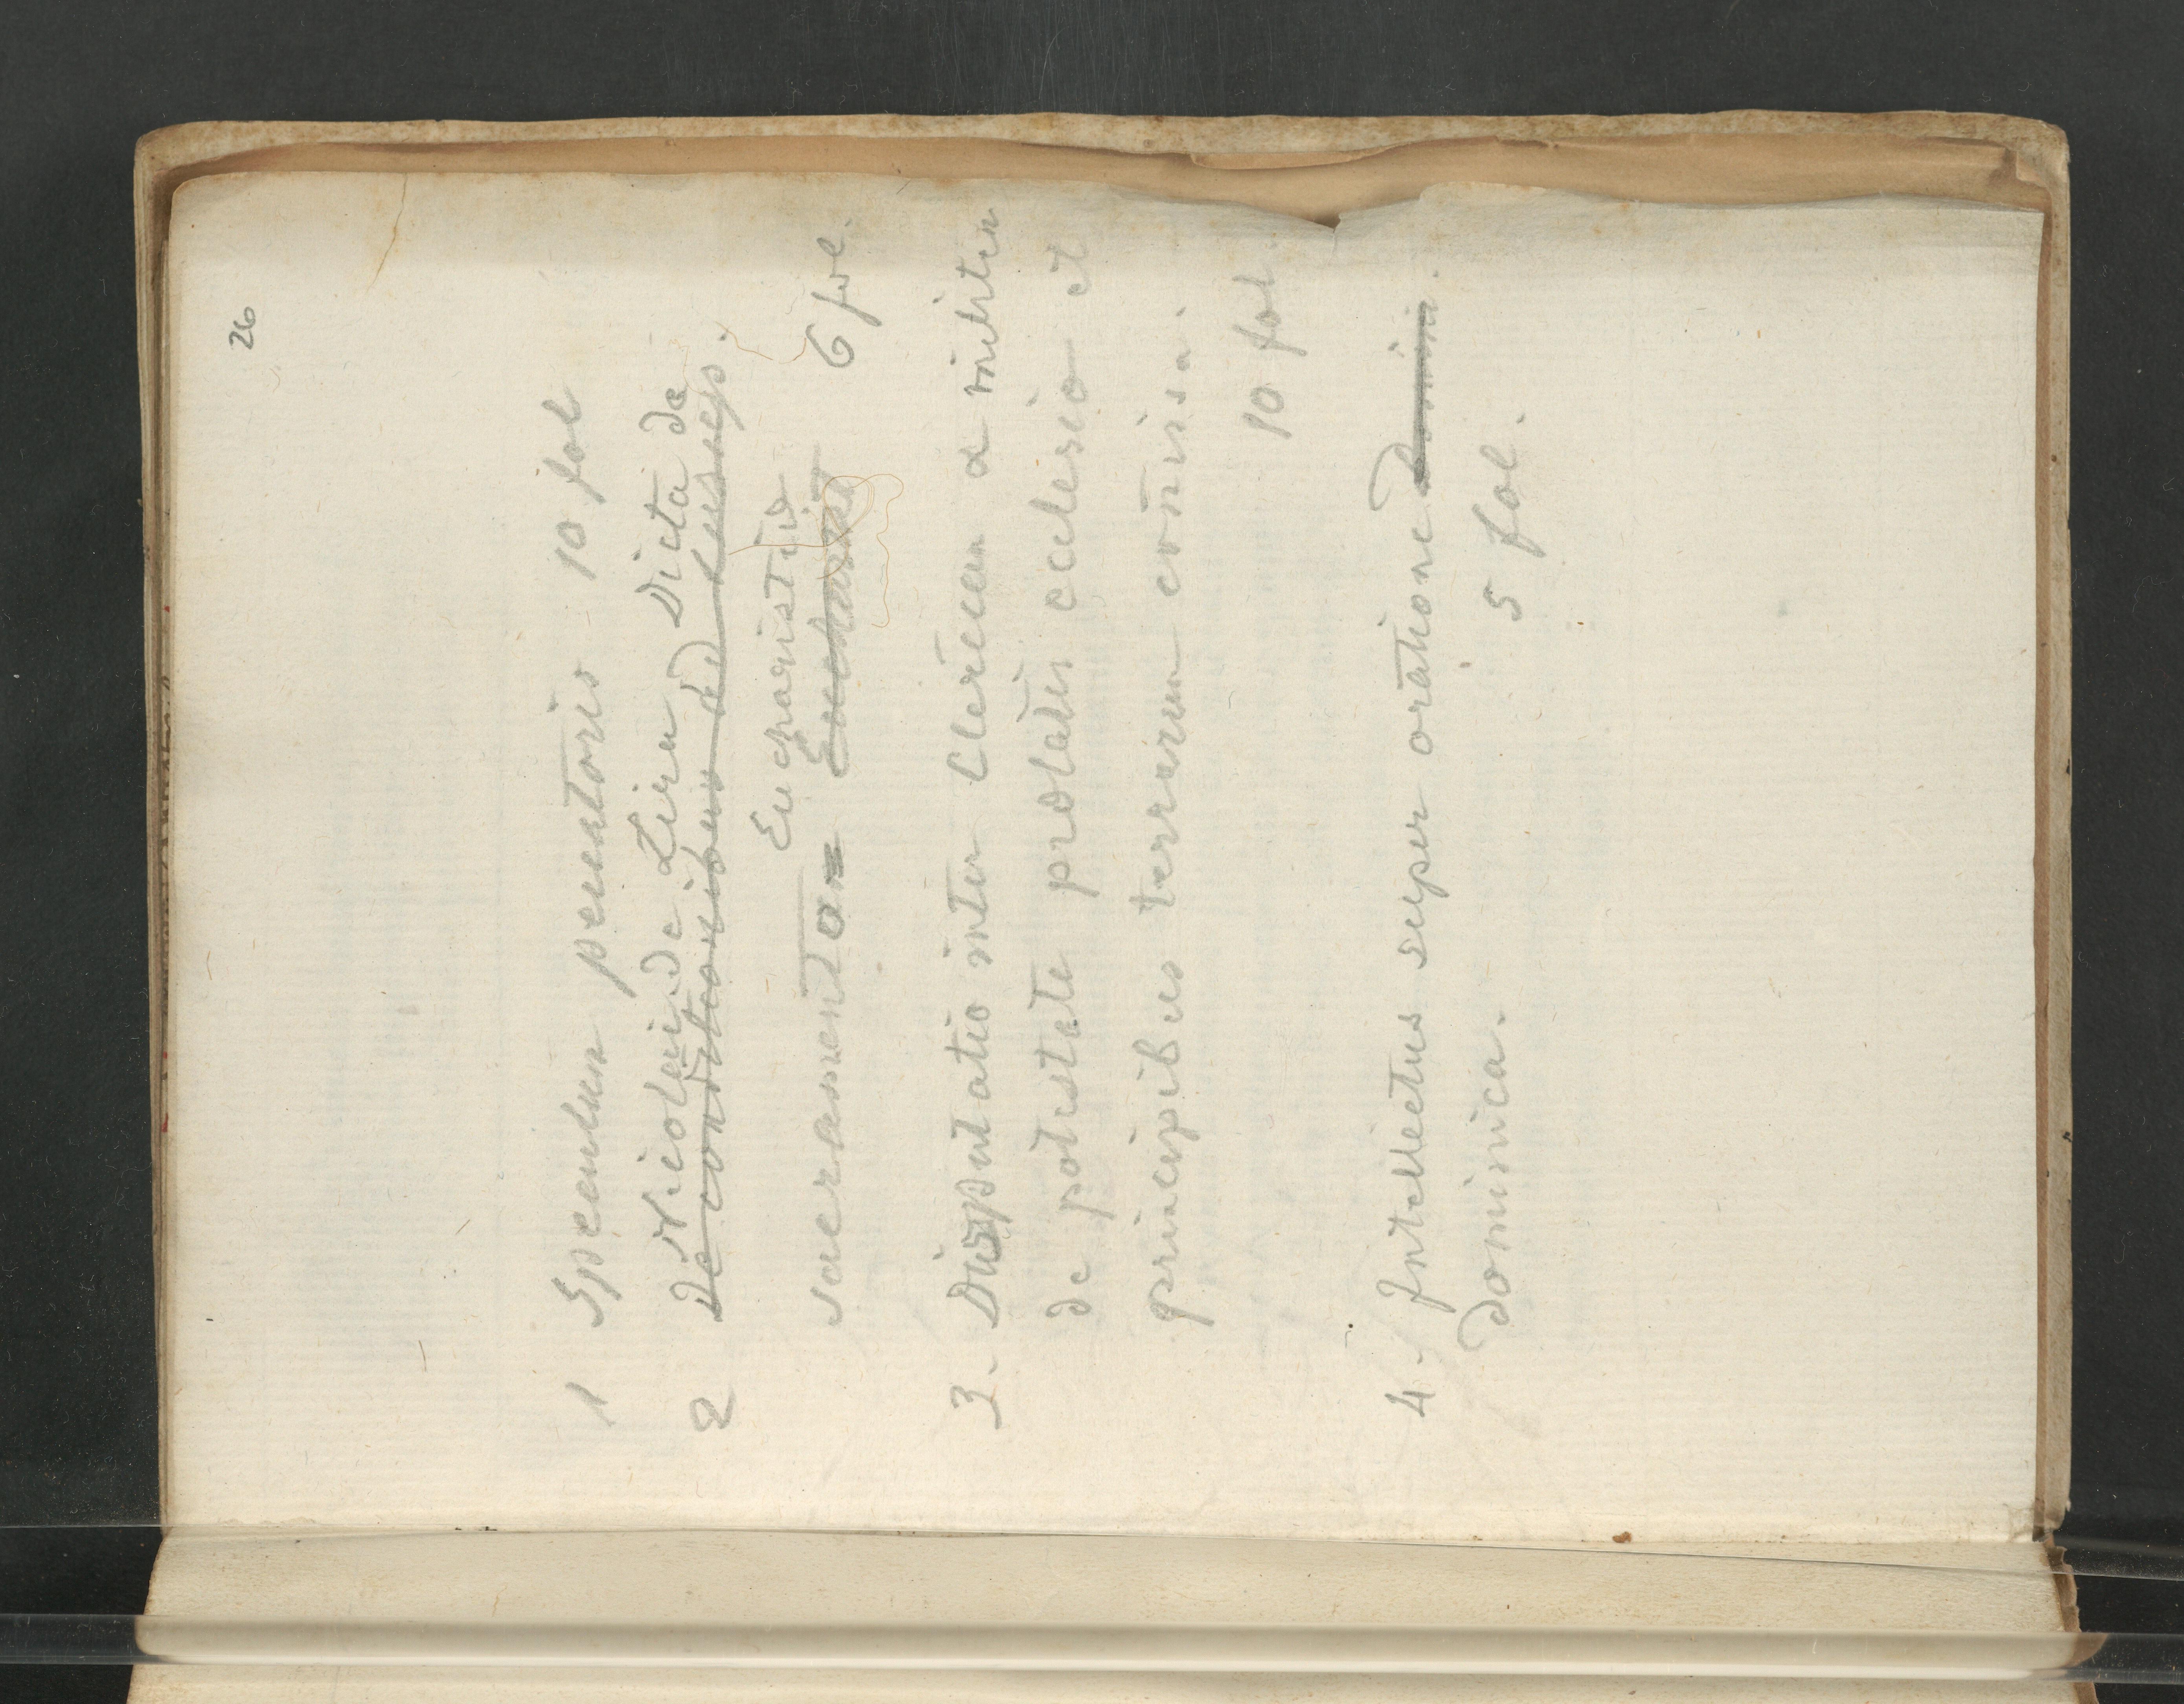 26
1 Speculum peccatoris 10 fol
Nicolai de Lira Dicta de
2 De conditionibus ad
Eucharistiæ
sacramento 6 fol.
3. Disputatio inter Clericum & militem
de potestate prælatis ecclesiæ et
principibus terrarum comissa.
10 fol
4. Intellectus super orationē Domini.
dominica. 5 fol.